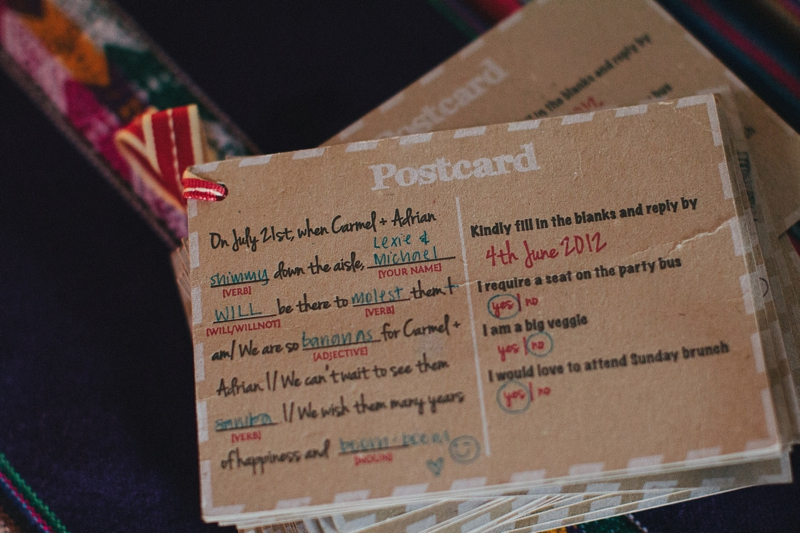 Postcard
On July 21st, when Carmel + Adrian
Lexie &
shimmy down the aisle, Michael
[VERB] [YOUR NAME]
WILL be there to molest them. I
[WILL/WILL NOT] [VERB]
am/ We are so bananas for Carmel +
[ADJECTIVE]
Adrian I/ We can't wait to see them
I/ We wish them many years
[VERB]
of happiness and boom-boom
[NOUN]
Kindly fill in the blanks and reply by
4th June 2012
I require a seat on the party bus
yes | no
I am a big veggie
yes | no
I would love to attend Sunday brunch
yes | no
Postcard
in the blanks and reply by
2012
bus